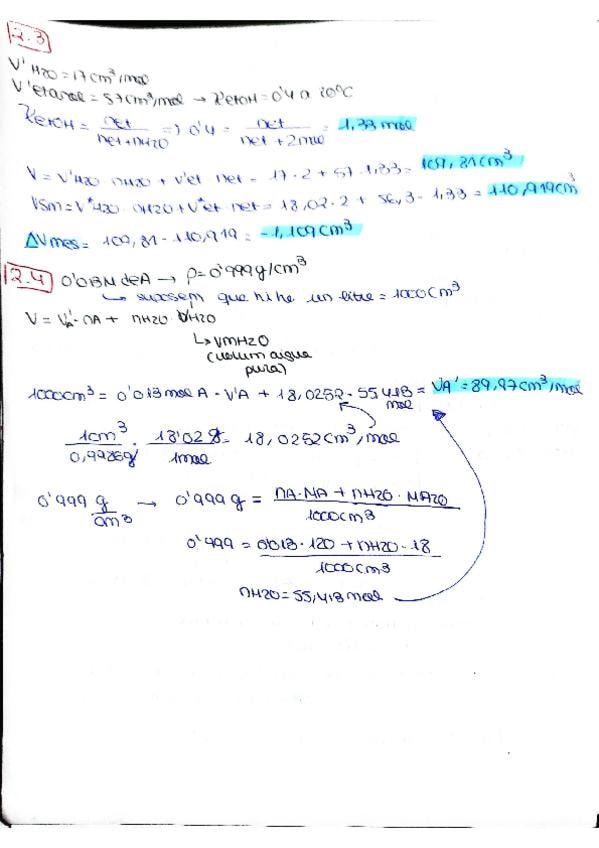 2.3
V'H2O = 17 cm³/mol
V'etanol = 57 cm³/mol → XETOH = 0'4 a 20°C
XETOH = net / net + nH2O => 0'4 = net / net + 2mol = 1,33 mol
V = V'H2O · nH2O + V'et · net = 17 · 2 + 57 · 1,33 = 109,81 cm³
VSm = V*H2O · nH2O + V*et · net = 18,02 · 2 + 56,3 · 1,33 = 110,919 cm³
ΔVmes = 109,81 - 110,919 = -1,109 cm³
2.4 0'013M de A → ρ = 0'999 g/cm³
↳ suposem que hi ha un litre = 1000 cm³
V = VA' · nA + nH2O · VH2O
↳ VmH2O
(volum aigua
pura)
1000 cm³ = 0'013 mol A · V'A + 18,0252 · 55,418 mol = VA' = 89,97 cm³/mol
1cm³ / 0,9986g · 18'02 g / 1mol = 18,0252 cm³/mol
0'999 g/cm³ → 0'999 g = nA · MA + nH2O · MH2O / 1000 cm³
0'999 = 0'013 · 120 + nH2O · 18 / 1000 cm³
nH2O = 55,418 mol